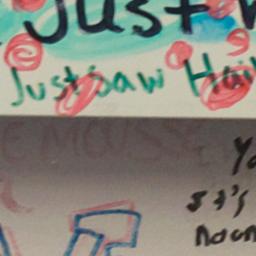 Just
Just saw Hai
E MOUSSE
Yo
It's
noon